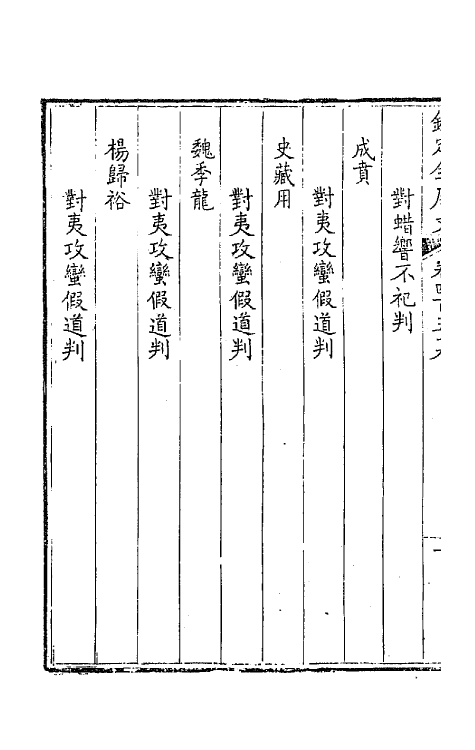 欽定全唐文 卷四百五十八 一
對蜡饗不祀判
成賁
對夷攻蠻假道判
史藏用
對夷攻蠻假道判
魏季龍
對夷攻蠻假道判
楊歸裕
對夷攻蠻假道判